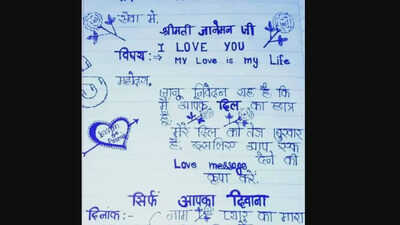 सेवा में,
श्रीमती जानेमन जी
I LOVE YOU
विषय:→ My Love is my Life
महोदया,
जानू निवेदन यह है कि
मैं आपके दिल का छात्र
हूँ।
मेरे दिल को तेज बुखार
है, इसलिए आप एक
Love message देने की
कृपा करें.
सिर्फ आपका दिवाना
दिनांक:- नाम है प्यार का मारा